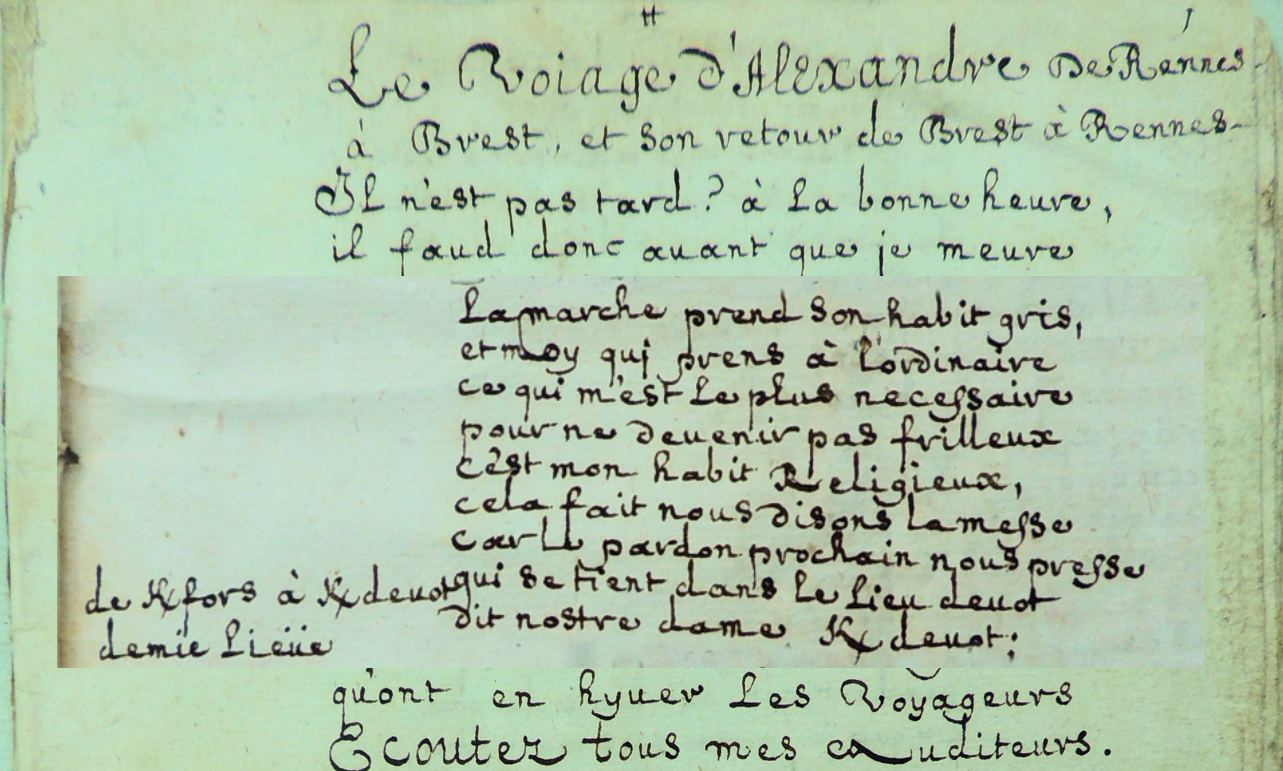 tt
1
Le Voiage d'Alexandre De Rénnes
à Brest, et son retour de Brest à Rennes
Il n'est pas tard? à La bonne heure,
il faud donc auant que je meure
Lamarche prend son habit gris,
et moy qui prens à l'ordinaire
ce qui m'est Le plus necessaire
pour ne deuenir pas frilleux
c'est mon habit Religieux,
cela fait nous disons la messe
car le pardon prochain nous presse
qui se tient dans le Lieu deuot
dit nostre dame Ꝃ deuot;
de Ꝃfors à Ꝃdeuot
demie Lieüe
qu'ont en hyuer Les Voyageurs
Ecoutez tous mes Auditeurs.